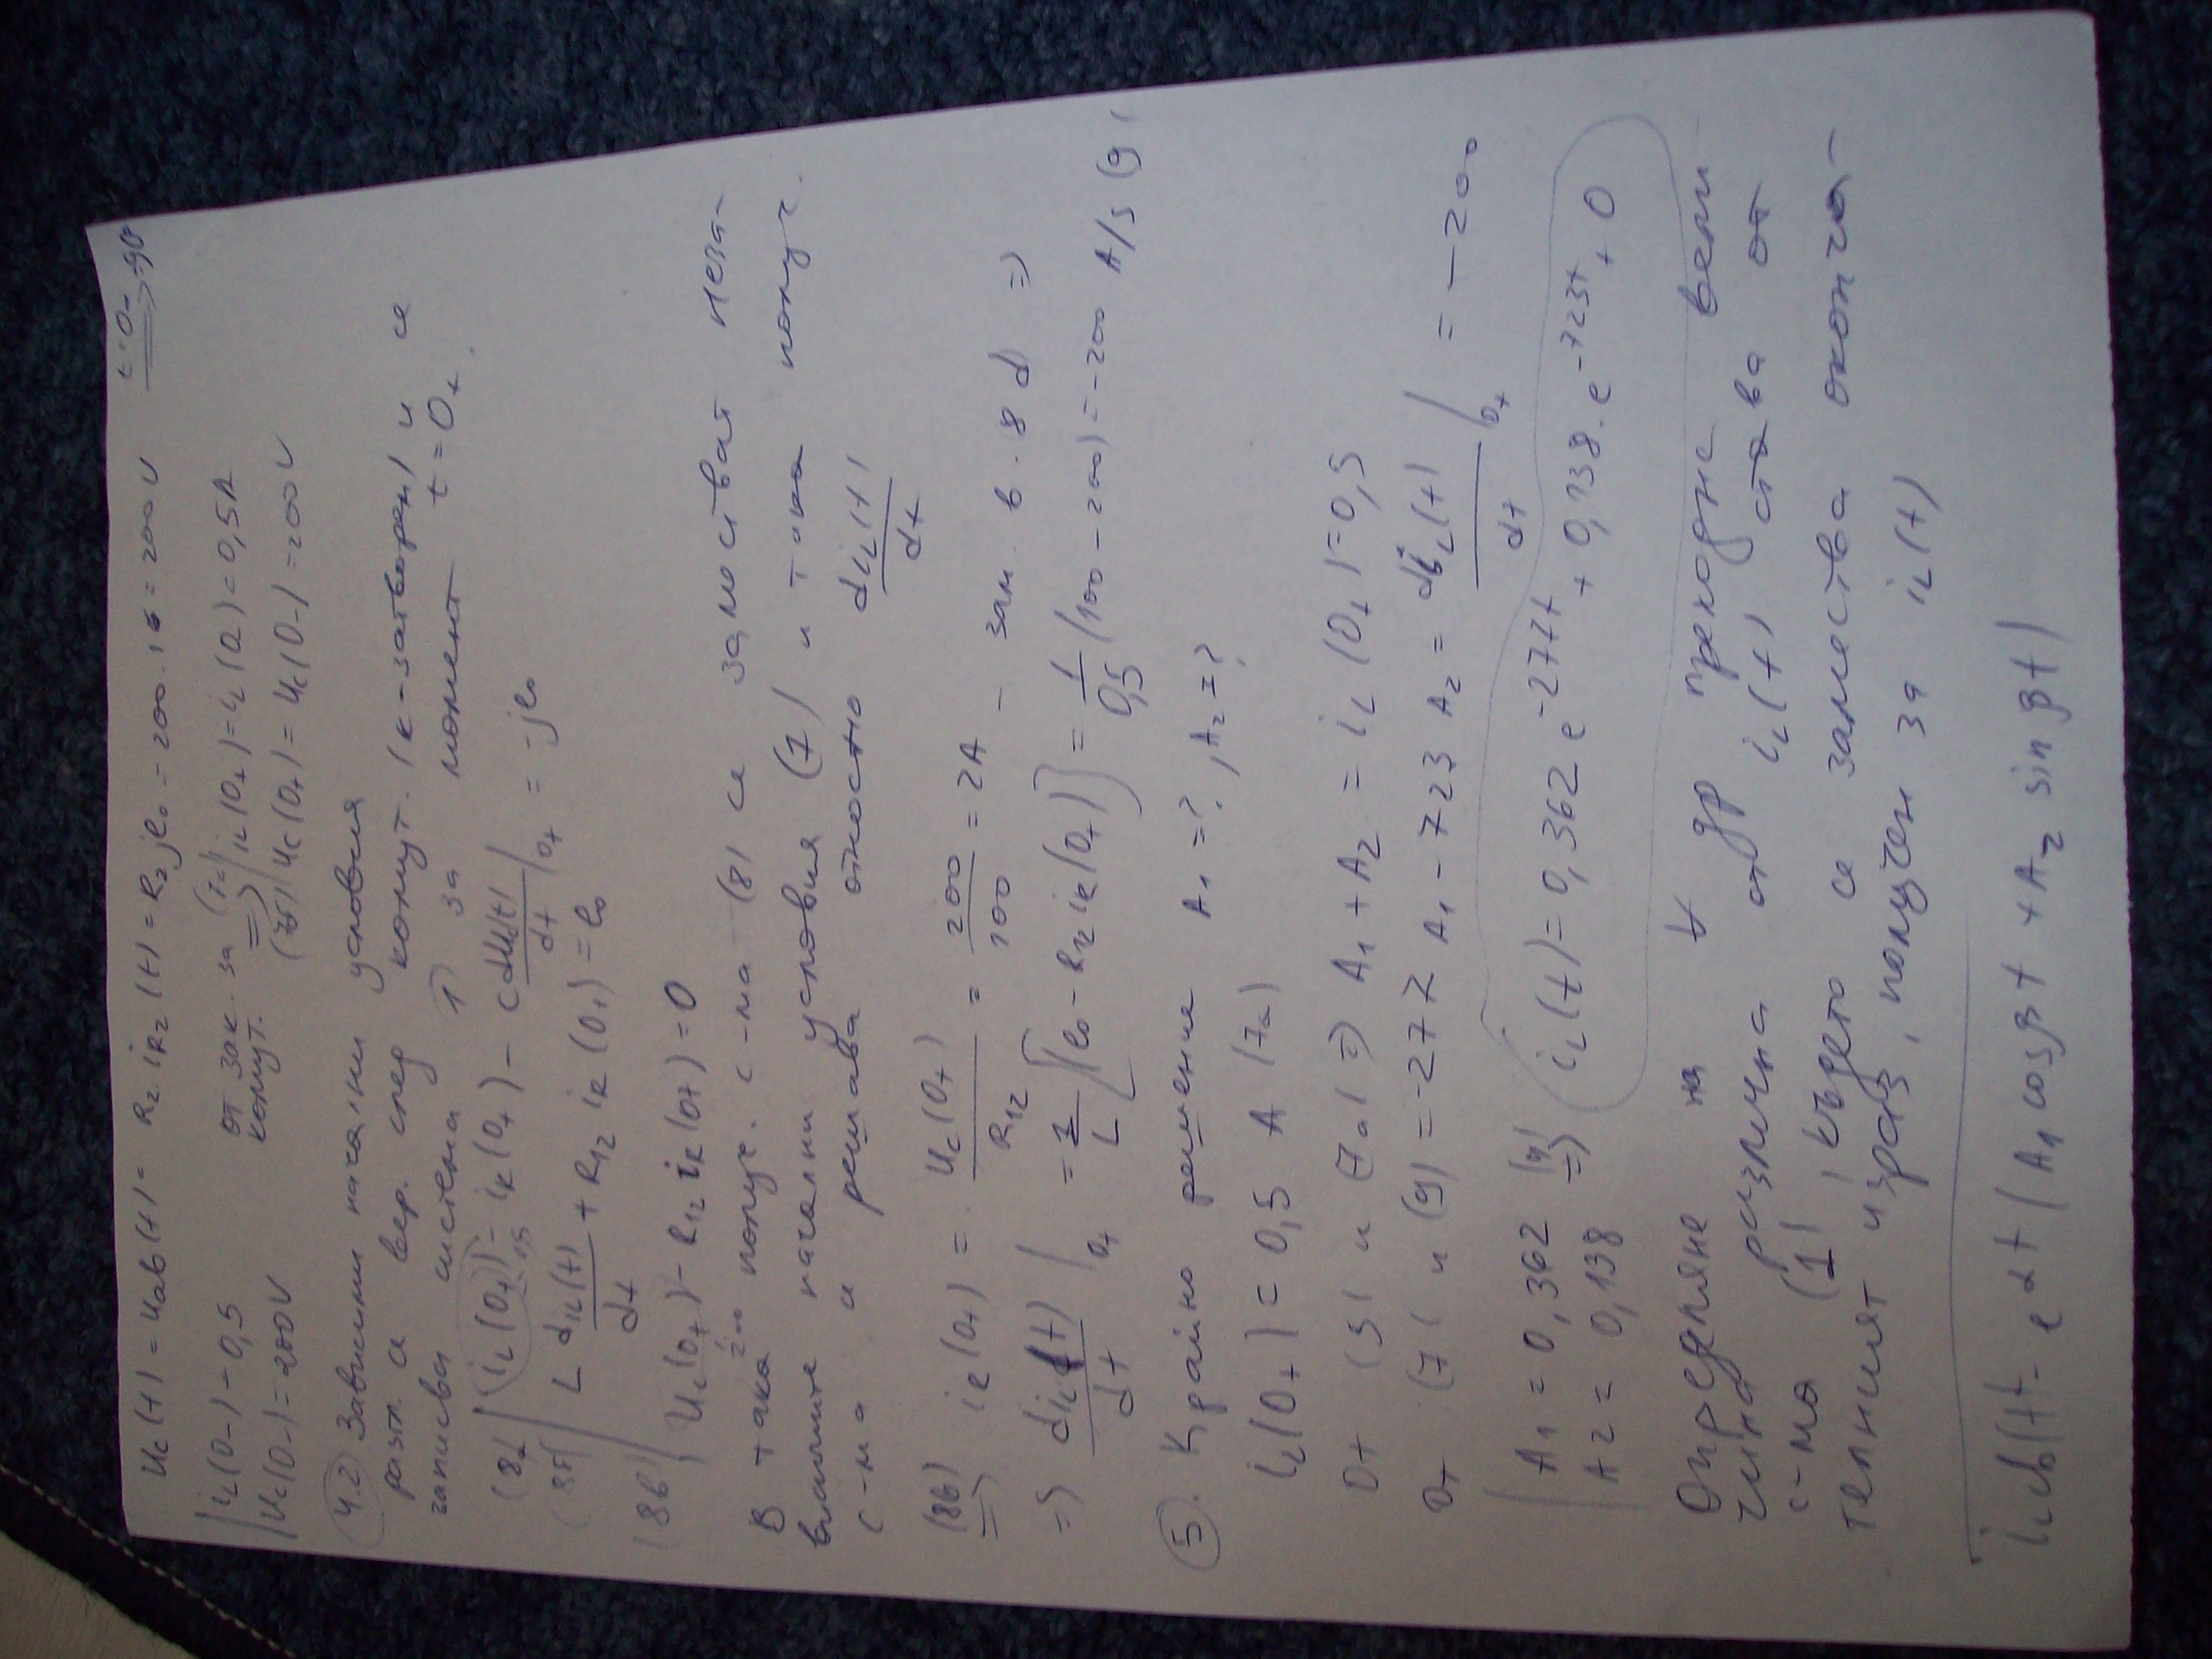 t=0- → 0+
Uc(t) = Uab(t) = R2 iR2(t) = R2 je0 = 200.1 = 200V
iL(0-) = 0,5 от зак. за (7a) iL(0+) = iL(0-) = 0,5A
Uc(0-) = 200V комут. => (7б) Uc(0+) = Uc(0-) = 200V
4.2 Зависими начални условия
разгл. се вер. след комут. (к-затворен) и се
записва система 1) за момент t=0+.
(8a) iL(0+) - iR(0+) - C dUc(t)/dt |0+ = -je0
0,5
(8б) L diL(t)/dt + R12 iR(0+) = e0
(8в) Uc(0+) - R12 iR(0+) = 0
200
В така получ. с-ма (8) се заместват неза-
висимите начални условия (7) и така получ.
с-ма се решава относно diL(t)/dt
(8в) => iR(0+) = Uc(0+)/R12 = 200/100 = 2A - зам. в. 8d =>
=> diL(t)/dt |0+ = 1/L [e0 - R12 iR(0+)] = 1/0,5 (100 - 200) = -200 A/s (9)
5. Крайно решение A1 = ?, A2 = ?
iL(0+) = 0,5 A (7a)
От (5) и (7a) => A1 + A2 = iL(0+) = 0,5
От (7) и (9) = -277 A1 - 723 A2 = diL(t)/dt |0+ = -200
A1 = 0,362
A2 = 0,138 => iL(t) = 0,362 e^-277t + 0,138.e^-723t + 0
Определяне на ∀ др преходна вели-
чина различна от iL(t) става от
с-ма (1) където се замества оконча-
телният израз, получен за iL(t)
iLсв(t) = e^αt (A1 cosβt + A2 sinβt)